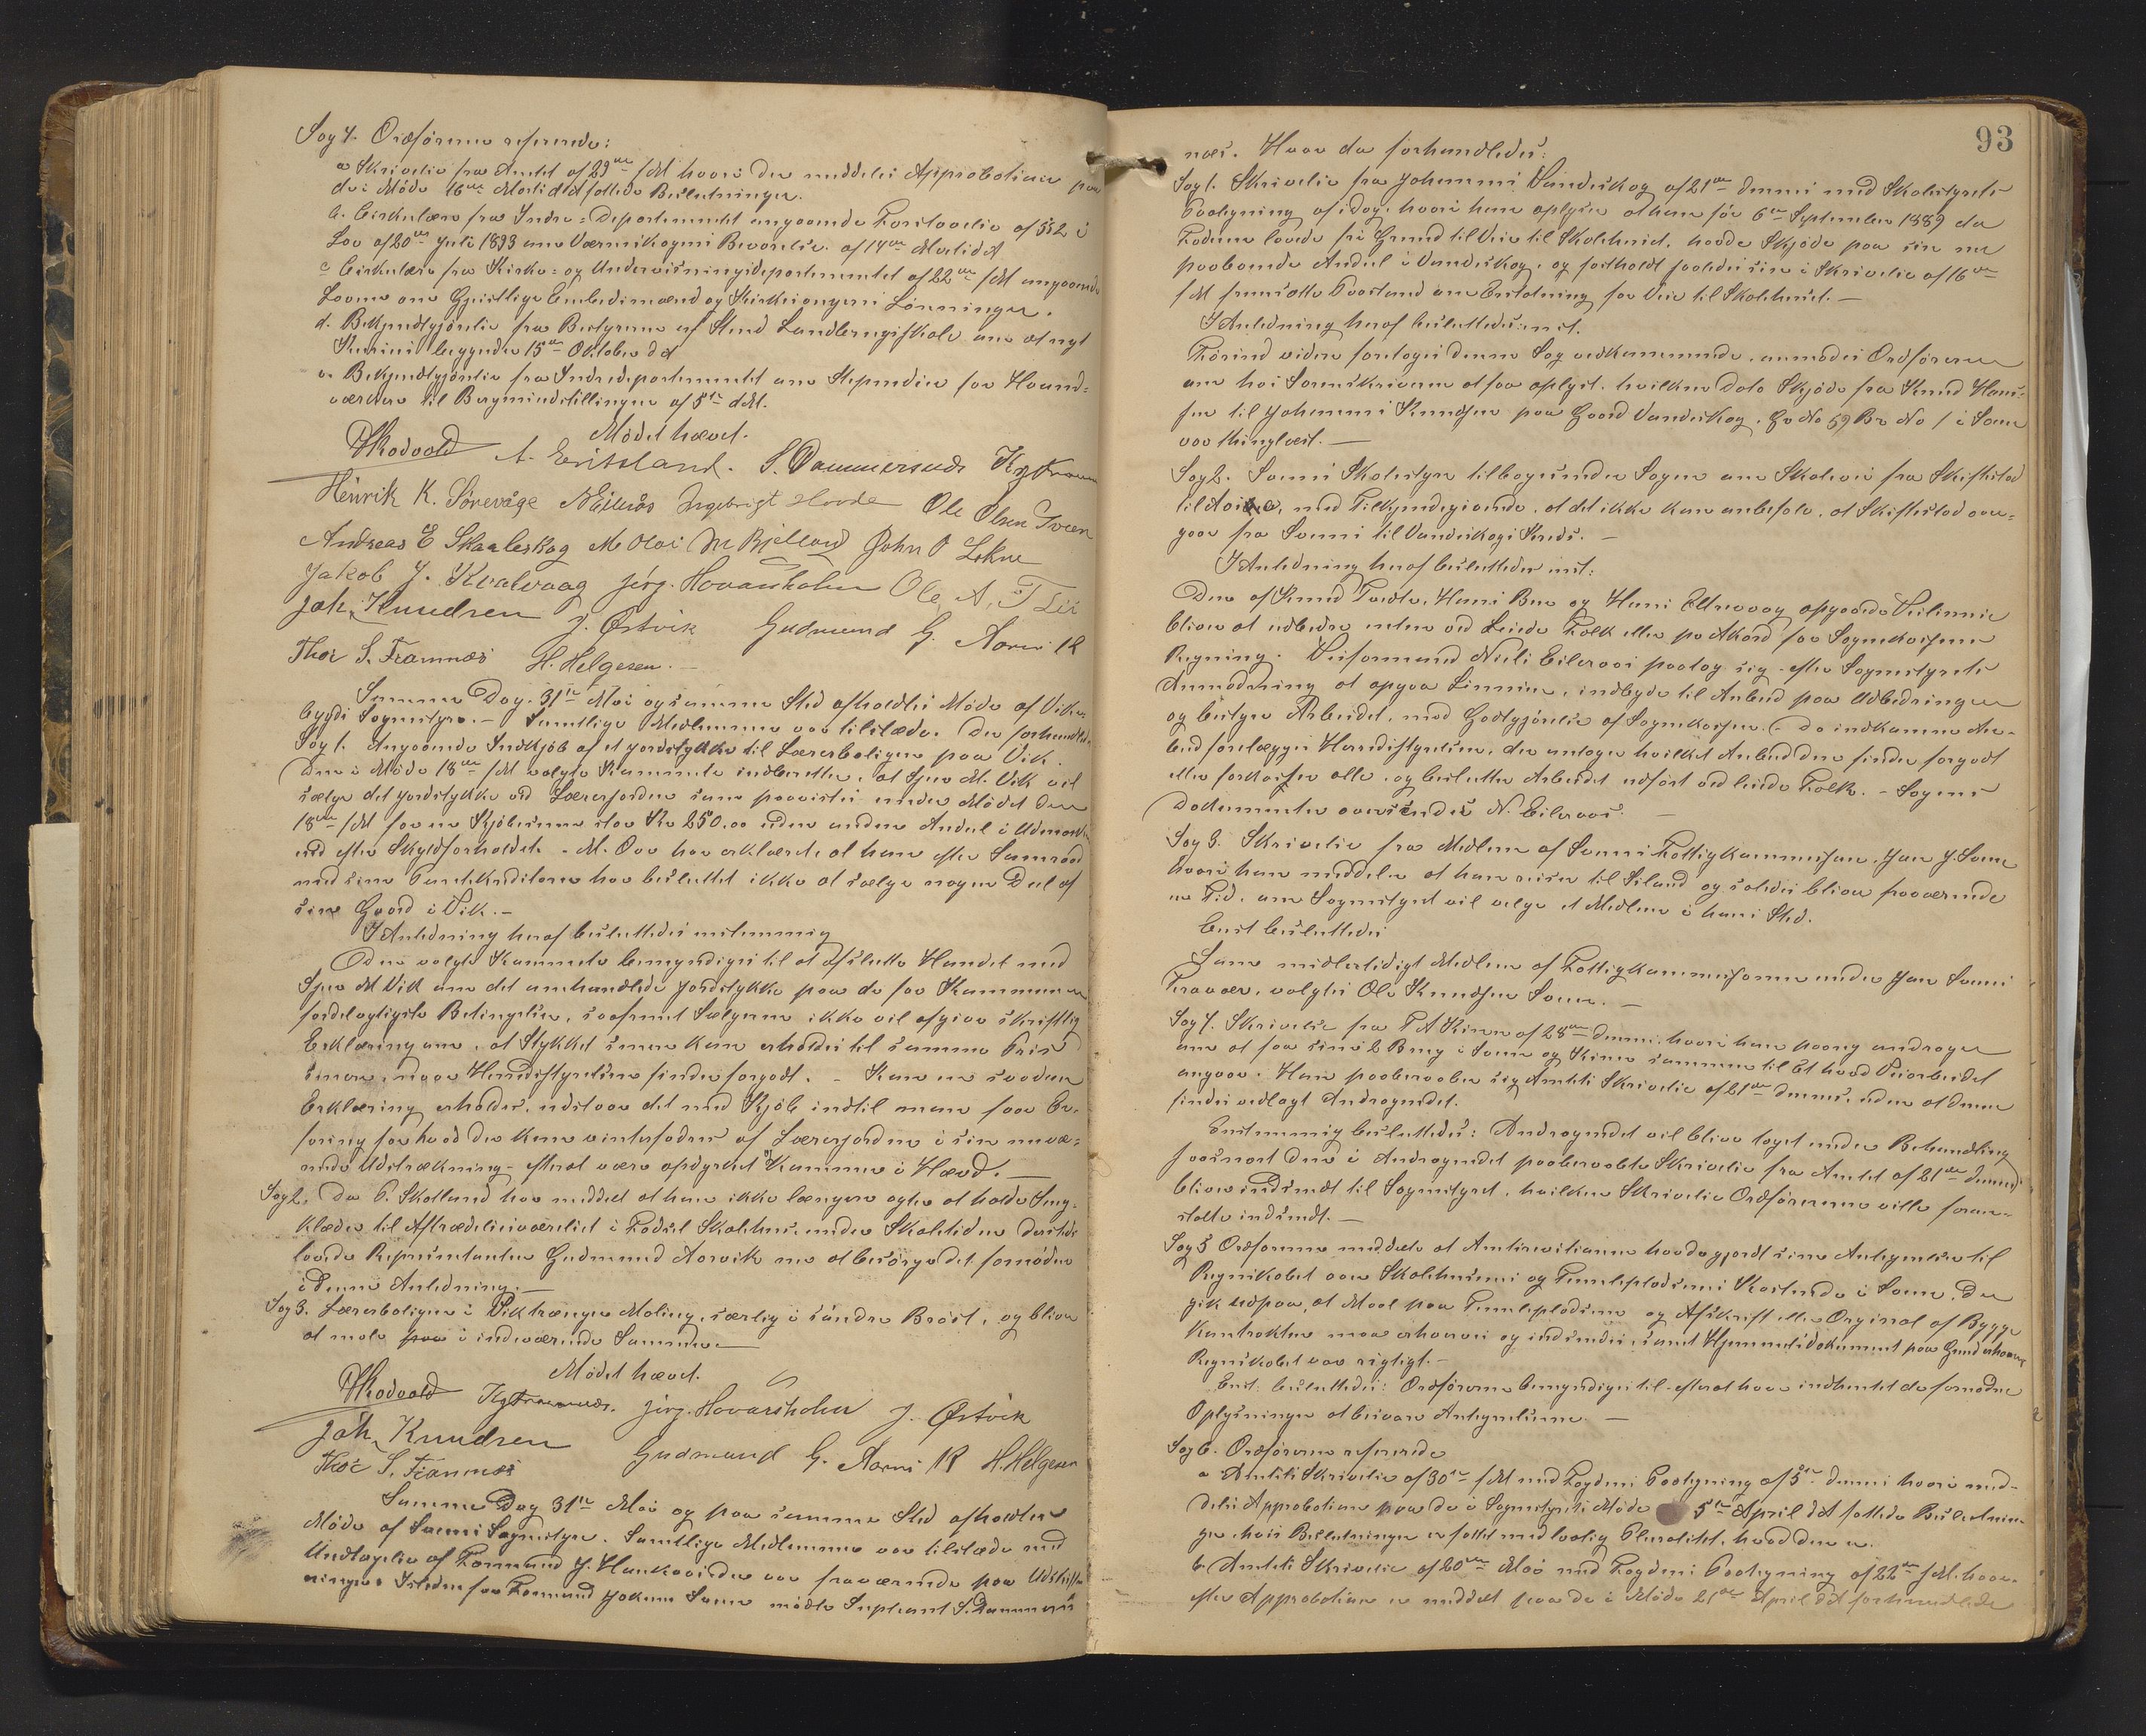 Sag 4. Ordføreren refererede:
a Skrivelse fra Amtet af 29de f M hvori der meddeles Approbation paa
de i Møde 16de Marts d A fattede Beslutninger.
b. Cirkulære fra Indre-Departementet angaaende Foreløvelse af § 52 i
Lov af 20de Juli 1893 om af 14de Marts d A
c Cirkulære fra Kirke- og Undervisningsdepartementet af 22de f M angaaende
Lovene om Geistlige Embedsmænd og Kirkesangeres Lønninger.
d. Bekjendtgjørelse fra Bestyreren af Stend Landbrugsskole om at nyt
Kursus begynder 15de Oktober d A
e. Bekjendtgjørelse fra Indredepartementet om Stipendier for Haand-
værkere til Bergensudstillingen af 5te d M.
Mødet hævet.
A. Eritsland. S. Dammersnæs
Henrik K. Sørevåge N Eilerås Ingebrigt Hovde Ole Olsen Tveen
Andreas E Skarleskog M Oloi M Bjelland John O Lokne
Jakob J. Kvalvaag Jørg. Hovarsholm Ole A.
Joh. Knudsen J. Østvik Gudmund G. Aarvik
Thor S. Framnæs H. Helgesen.
Samme Dag 31te Mai og samme Sted afholdtes Møde af Vike-
bygds Sognestyre. - Samtlige Medlemmer var tilstæde. Der forhandledes
Sag 1. Angaaende Indkjøb af et Jordstykke til Lærerboligen paa Vik.
Den i Møde 18de f M valgte Kommite indberetter, at Sjur M. Vik vil
sælge det Jordstykke ved Lærerjorden som paavistes under Mødet den
18de f M for en Kjøbesum stor Kr 250.00 uden anden Andel i Udmarken
end efter Skyldforholdet. - M. har erklæret, at han efter Samraad
med sine Pantekreditorer har besluttet ikke at sælge nogen Deel af
sin Gaard i Vik. -
I Anledning heraf besluttedes enstemmig
Den valgte Kommite bemyndiges til at afslutte Handel med
Sjur M Vik om det omhandlede Jordstykke paa de for Kommunen
fordelagtigste Betingelser, saafremt Sælgeren ikke vil afgive skriftlig
Erklæring om, at Stykket senere kan erholdes til samme Pris
senere, naar Herredstyrelsen finder forgodt. - Kan en saadan
Erklæring erholdes, udstaar det med Kjøb indtil man faar Er-
faring for hvad der kan vinterfødes af Lærerjorden i sin nuvæ-
rende Udstrækning - efterat være opdyrket & kommen i Hævd. -
Sag 2. Da P. Skotland har meddelt at han ikke længere agter at holde Seng-
klæder til Afbrædelsesværelset i Fodsel Skolehus, under Skoletiden dersteds
lovede Repræsentanten Gudmund Aarvik om at besørge det fornødne
i denne Anledning. -
Sag 3. Lærerboligen i Vik trænger Maling, særlig i søndre Brøst, og bliver
at male i indeværende Sommer. -
Mødet hævet.
Jørg. Hovarsholm J. Østvik
Joh. Knudsen Gudmund G. Aarvik H. Helgesen
Thor S. Framnæs
Samme Dag 31te Mai og paa samme Sted afholdtes
Møde af Sveens Sognestyre. Samtlige Medlemmer var tilstæde med
Undtagelse af Formand J. der var fraværende paa Udskift-
ninger. Istedenfor Formand Jokum Sveen mødte Supleant S. Dammers-
93
næs. Hvor da forhandledes:
Sag 1. Skrivelse fra Johannes Vandeskog af 21de dennes med Skolestyrets
Paategning af idag, hvori han oplyser at han før 6te September 1889 da
Faderen lovede fri Grund til Vei til Skolehuset, havde Skjøde paa sin nu
paaboende Andel i Vandeskog, og fastholdt saaledes sin i Skrivelse af 16de
f M fremsatte Paastand om Erstatning for Vei til Skolehuset. -
I Anledning heraf besluttedes enst.
Førend videre foretages denne Sag vedkommende, anmodes Ordføreren
om hos Sorenskriveren at faa oplyst, hvilken Dato Skjøde fra Knud Han-
sen til Johannes Knudsen paa Gaard Vandeskog, Gr No 59 Br No 1 i Sveen
var thinglæst. -
Sag 2. Sveens Skolestyre tilbagesender Sagen om Skolevei fra Skiftestad
til med Tilkjendegivende, at det ikke kan anbefale, at Skiftestad over-
gaar fra Sveens til Vandeskogs Kreds. -
I Anledning heraf besluttedes enst:
Den af Knud Tveite, Hans Bua og Hans Ellevaag opgaaede Veilinie
bliver at udbedre enten ved Leiede Folk eller paa Akord for Sognekassens
Regning. Veiformand Nils Eileraas paatog sig - efter Sognestyrets
Anmodning at opgaa Linien, indbyde til Anbud paa Udbedringen
og bestyre Arbeidet, mod Godtgjørelse af Sognekassen. - De indkomne An-
bud forelægges Herredstyrelsen, der antager hvilket Anbud den finder forgodt
eller forkaster alle, og beslutter Arbeidet udført ved leiede Folk. - Sagens
Dokumenter oversendes N. Eileraas. -
Sag 3. Skrivelse fra Medlem af Sveens Fattigkommission, Jan J. Sveen
hvori han meddeler at han reiser til Island og saaledes bliver fraværende
en Tid, om Sognestyret vil vælge et Medlem i hans Sted.
Enst besluttedes
Som midlertidigt Medlem af Fattigkommissionen under Jan Sveens
Fravær, valgtes Ole Knudsen Sveen. -
Sag 4. Skrivelse fra T A Kinn af 28de dennes, hvori han paany andrager
om at faa sine 2 Brug i Sveen og Kinn sammen til Et hvad Veiarbeidet
angaar. Han paaberaaber sig Amtets Skrivelse af 21de dennes, uden at denne
findes vedlagt Andragendet.
Enstemmig besluttedes: Andragendet vil blive taget under Behandling
saasnart den i Andragendet paaberaabte Skrivelse fra Amtet af 21de dennes
bliver indsendt til Sognestyret, hvilken Skrivelse Ordføreren ville foran-
stalte indsendt. -
Sag 5 Ordføreren meddelte at Amtsrevisionen havde gjort sine Antegnelser til
Regnskabet over Skolehusenes og Tomtepladsenes Kostende i Sveen, der
gik udpaa, at Maal paa Tomtepladsene og Afskrift eller Orginal af Bygge
Kontrakten maa erhverves og indsendes, samt Hjemmelsdokument paa Grund
Regnskabet var rigtigt. -
Enst. besluttedes: Ordføreren bemyndiges til - efterat have indhentet de fornødne
Oplysninger at besvare Antegnelserne. -
Sag 6. Ordføreren refererede
a Amtets Skrivelse af 30te f M med Fogdens Paategning af 5te dennes hvori med-
deles Approbation paa de i Sognestyrets Møde 5te April d A fattede Beslutnin-
ger, hvis Beslutninger er fattet med lovlig Pluralitet, hvad den er.
b Amtets Skrivelse af 20de Mai med Fogdens Paategning af 22de f M. hvor-
efter Approbation er meddelt paa de i Møde 21de April d A forhandlede